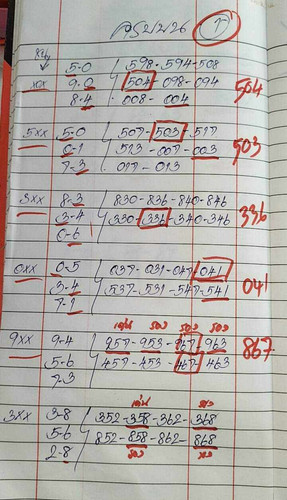 5-0 598-594-508
xx 9-0 504-098-094 504
8-4 008-004
5xx 5-0 507-503-517
0-1 513-007-003 503
7-3 017-013
8-3 830-836-840-846
3-4 330-336-340-346 336
0-6
0xx 0-5 037-031-047-041
3-4 537-531-547-541 041
7-1
เด่น รอง รอง รอง
9xx 9-4 957-953-967-963 867
5-6 457-453-467-463
7-3
เด่น
3xx 3-8 352-358-362-368
5-6 852-858-862-868
2-8 รอง